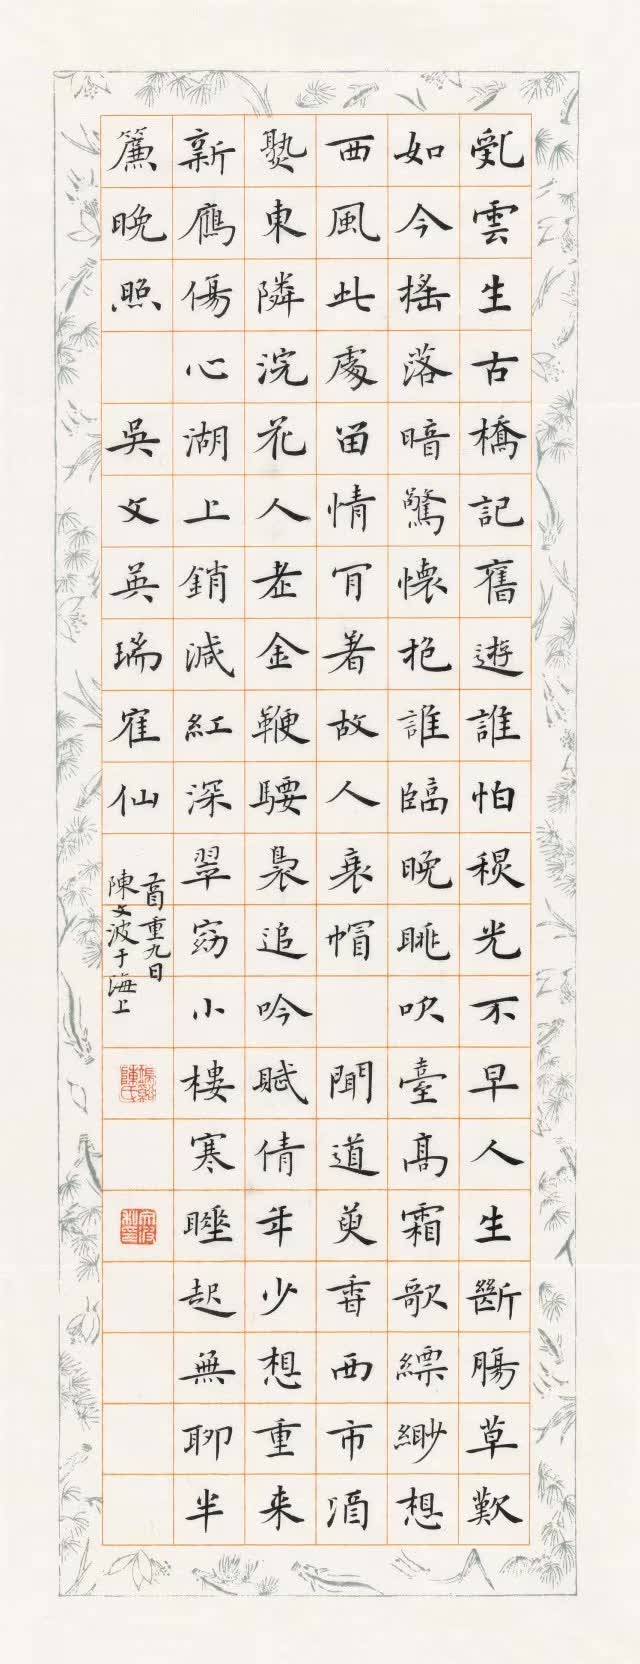 亂雲生古橋記舊遊誰怕秋光不早人生斷腸草歎
如今搖落暗驚懷抱誰臨晚眺吹臺高霜歌縹緲想
西風此處留情肯著故人衰帽 聞道萸香西市酒
熟東隣浣花人老金鞭騕褭追吟賦倩年少想重来
新鴈傷心湖上銷減紅深翠窈小樓寒睡起無聊半
簾晚照 吳文英瑞寉仙
重九日
陳文波于海上